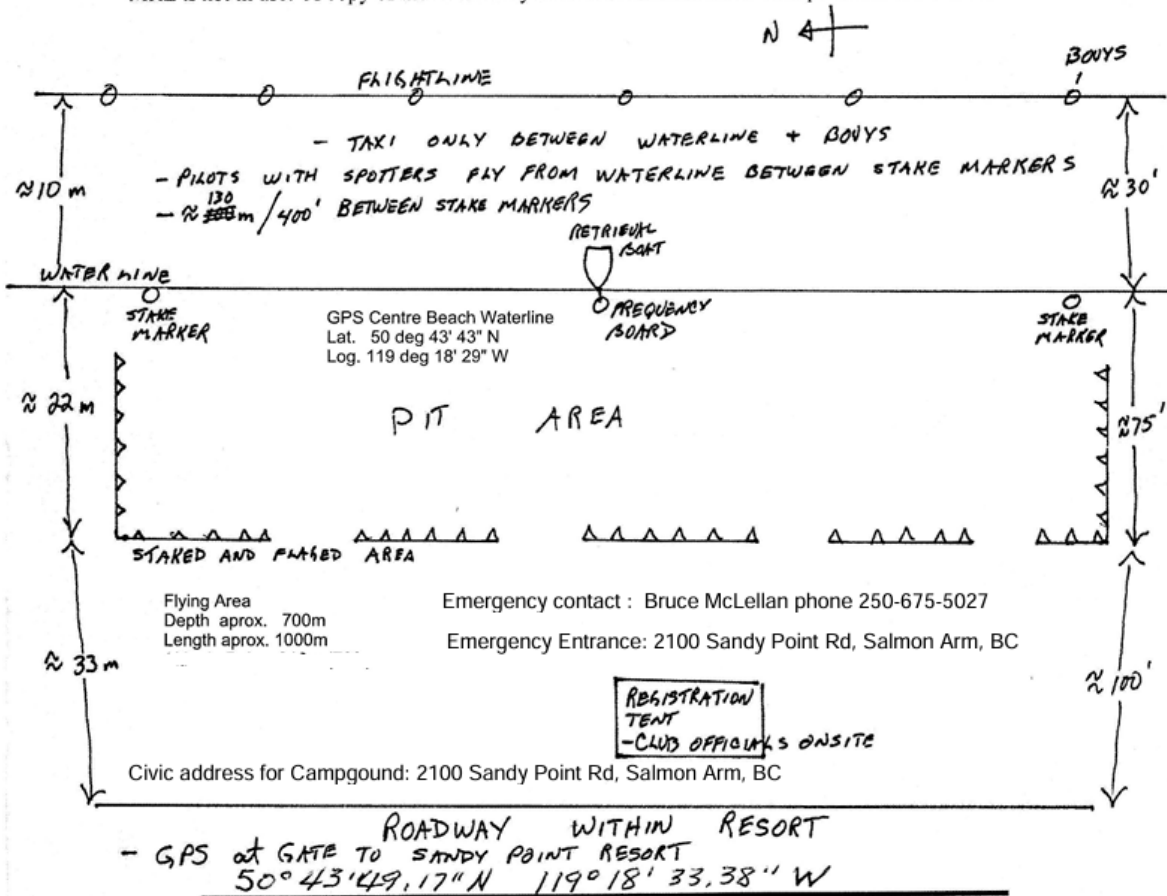 N
BOUYS
FLIGHTLINE
- TAXI ONLY BETWEEN WATERLINE + BOUYS
- PILOTS WITH SPOTTERS FLY FROM WATERLINE BETWEEN STAKE MARKERS
- ≈ 130 m / 400' BETWEEN STAKE MARKERS
≈ 10 m
≈ 30'
RETRIEVAL
BOAT
WATER LINE
STAKE
MARKER
GPS Centre Beach Waterline
Lat. 50 deg 43' 43" N
Log. 119 deg 18' 29" W
FREQUENCY
BOARD
STAKE
MARKER
≈ 22 m
PIT AREA
≈ 75'
STAKED AND FLAGED AREA
Flying Area
Depth aprox. 700m
Length aprox. 1000m
Emergency contact : Bruce McLellan phone 250-675-5027
Emergency Entrance: 2100 Sandy Point Rd, Salmon Arm, BC
≈ 33 m
≈ 100'
REGISTRATION
TENT
- CLUB OFFICIALS ONSITE
Civic address for Campgound: 2100 Sandy Point Rd, Salmon Arm, BC
ROADWAY WITHIN RESORT
- GPS at GATE TO SANDY POINT RESORT
50° 43' 49.17" N 119° 18' 33.38" W